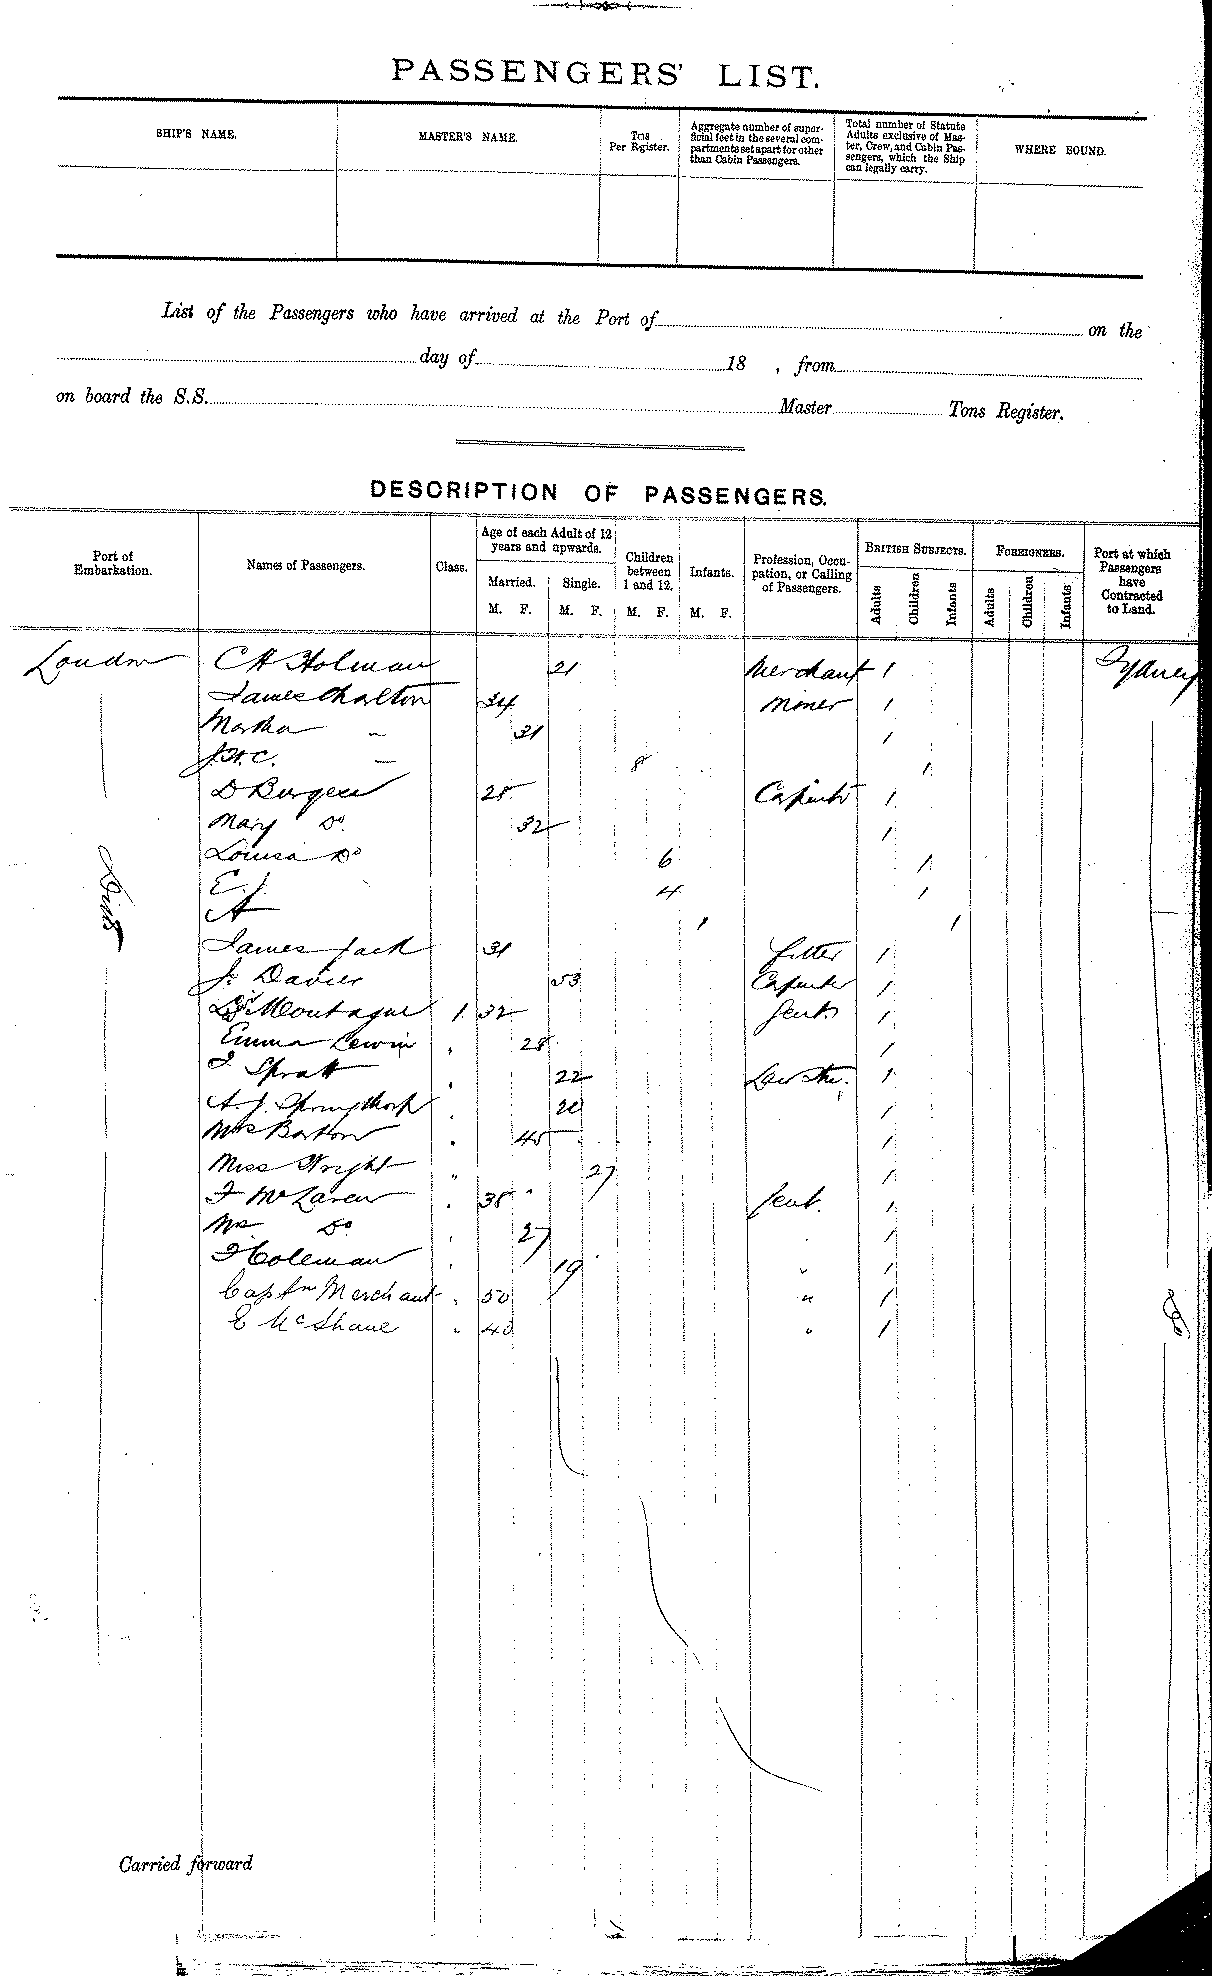 PASSENGERS' LIST.
SHIP'S NAME. MASTER'S NAME. Tns Per Register. Aggregate number of superficial feet in the several compartments set apart for other than Cabin Passengers. Total number of Statute Adults exclusive of Master, Crew, and Cabin Passengers, which the Ship can legally carry. WHERE BOUND.
List of the Passengers who have arrived at the Port of on the
day of 18 , from
on board the S.S. Master Tons Register.
DESCRIPTION OF PASSENGERS.
Port of Embarkation. Names of Passengers. Class. Age of each Adult of 12 years and upwards. Married. M. F. Single. M. F. Children between 1 and 12. M. F. Infants. M. F. Profession, Occupation, or Calling of Passengers. BRITISH SUBJECTS. Adults Children Infants FOREIGNERS. Adults Children Infants Port at which Passengers have Contracted to Land.
London C H Holman 21 Merchant 1 Sydney
James Charlton 34 Miner 1
Martha " 31 1
J.H.C. " 8 1
D Burgess 28 Carpenter 1
Mary Do. 32 1
Louisa Do 6 1
E. J. 4 1
A 1 1
Ditto
James Jack 31 Fitter 1
J. Davies 53 Carpenter 1
Montague 1 32 Gent. 1
Emma Lewin " 28 1
Spratt " 22 1
A. J. Springthorp " 20 1
Mrs Barton " 45 1
Miss Wright " 27 1
F McLaren " 38 Gent. 1
Mrs Do. " 27 1
F Coleman " 19 " 1
Captn Merchant " 50 " 1
E McShane " 40 " 1
Carried forward